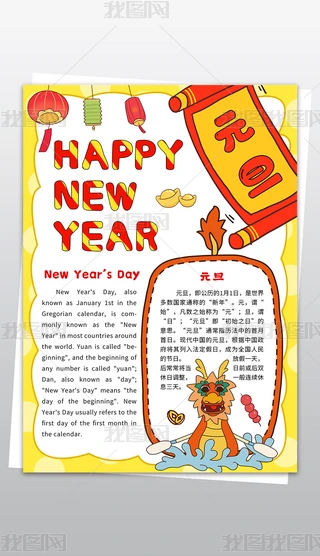 HAPPY
NEW
YEAR
元旦
New Year's Day
New Year's Day, also
known as January 1st in the
Gregorian calendar, is com-
monly known as the "New
Year" in most countries around
the world. Yuan is called "be-
ginning", and the beginning of
any number is called "yuan";
Dan, also known as "day";
"New Year's Day" means "the
day of the beginning". New
Year's Day usually refers to the
first day of the first month in
the calendar.
元旦
元旦，即公历的1月1日，是世界
多数国家通称的“新年”。元，谓“
始”，凡数之始称为“元”；旦，谓
“日”；“元旦”即“初始之日”的意
思。“元旦”通常指历法中的首月
首日。现代中国的元旦，根据中国政
府将其列入法定假日，成为全国人民
的节日。 放假一天，
后常常将当 日前或后双
休日调整， 一般连续休
息三天。